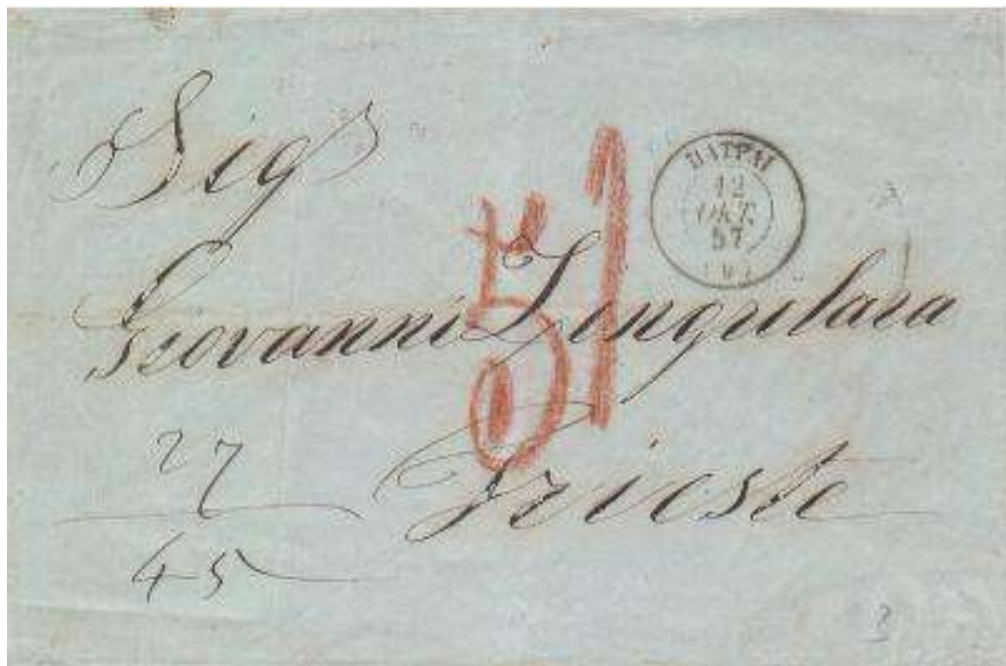 Sigr
ΠΑΤΡΑΙ
12
ΟΚΤ.
57
51
Giovanni Zingulara
27
45
Trieste